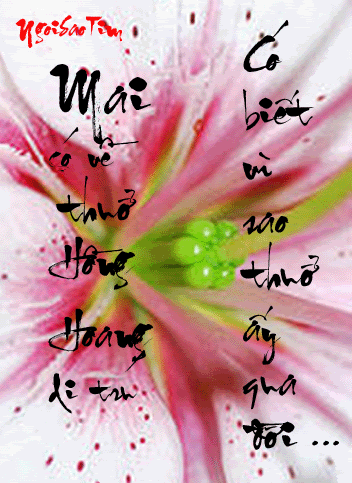 NgoiSaoTim
Mai
có về
thuở
Hồng
Hoang
di trú
Có
biết
vì
sao
thuở
ấy
qua
đời ...